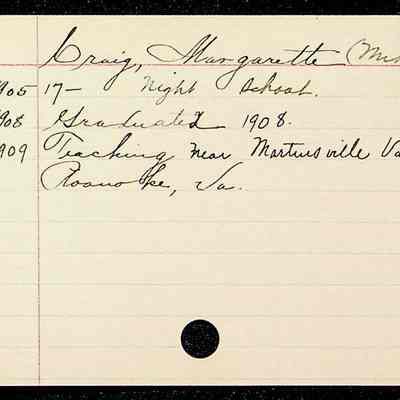 Craig, Margarette (M
905 17- Night School.
908 Graduated 1908.
909 Teaching near Martinsville Va
Roanoke, Va.